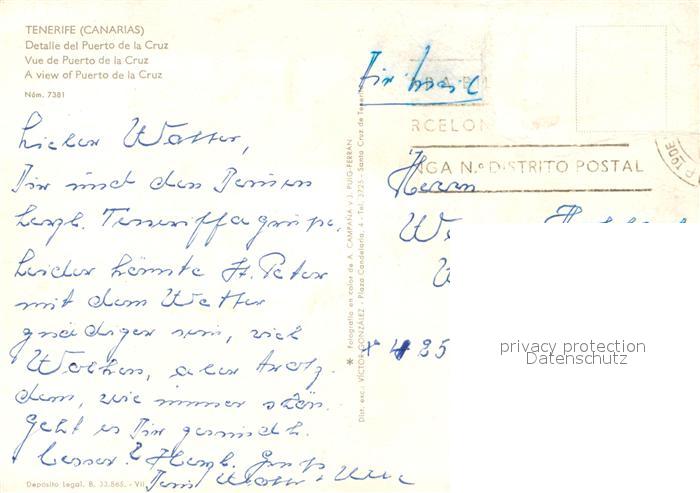 TENERIFE (CANARIAS)
Detalle del Puerto de la Cruz
Vue de Puerto de la Cruz
A view of Puerto de la Cruz
Núm. 7381
Lieber Walter,
Dir und den Deinen
herzl. Teneriffagrüße.
Leider könnte St. Peter
mit dem Wetter
gnädiger sein, viel
Wolken, aber trotz-
dem, wie immer schön.
Geht es Dir
besser? Herzl. Grüße
Dein Walter +
Depósito Legal. B. 33.865. - VII
* Fotografía en color de A. CAMPAÑA y J. PUIG-FERRAN
Dist. exc.: VICTOR GONZÁLEZ - Plaza Candelaria, 4 - Tel. 3725 - Santa Cruz de Tenerife
Air mail
RCELON
NGA N.º DISTRITO POSTAL
Herrn
25
privacy protection
Datenschutz